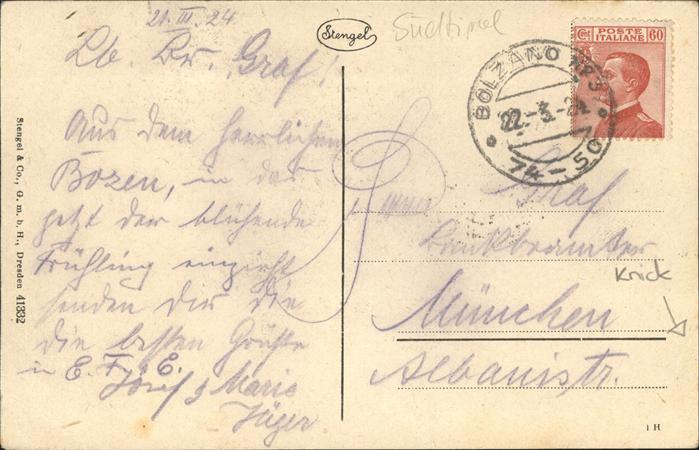 21. III. 24
Stengel
Südtirol
POSTE ITALIANE
Cmi 60
BOLZANO
22.-3.-24
14-50
Lb. Br. Graf!
Aus dem herrlichen
Bozen, in das
jetzt der blühende
Frühling einzieht
senden Dir die
die besten Grüße
in E. F. E.
Josef & Marie
Jäger
Stengel & Co., G. m. b. H., Dresden 41332
Graf
Bankbeamter
Knick
München
Albanistr.
1 H